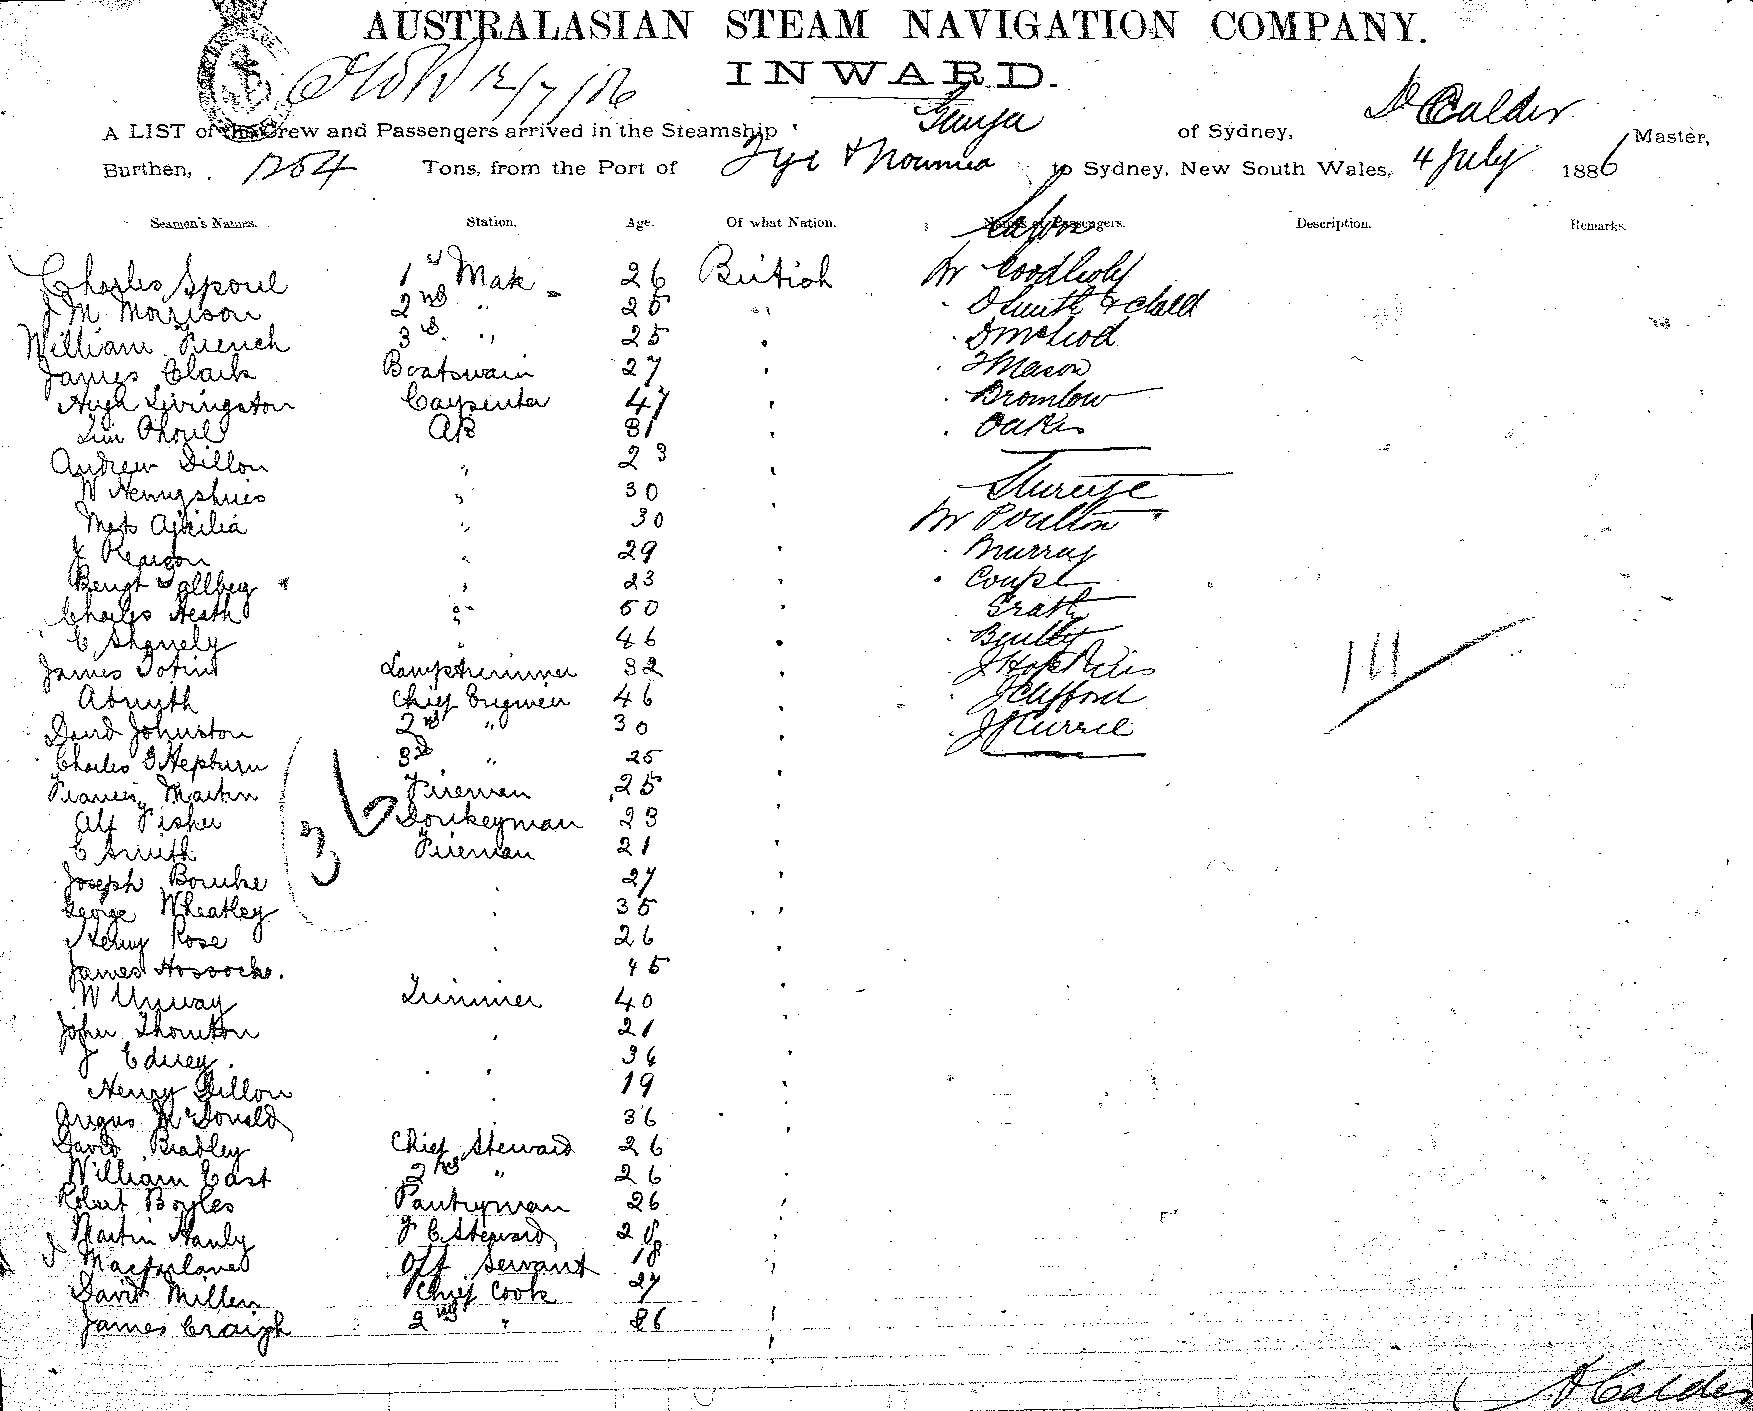 AUSTRALASIAN STEAM NAVIGATION COMPANY.
INWARD.
12/7/86
A LIST of the Crew and Passengers arrived in the Steamship of Sydney, D Calder Master,
Burthen, 1254 Tons, from the Port of Fiji & Noumea to Sydney, New South Wales, 4 July 1886
Seamen's Names. Station. Age. Of what Nation. Names of Passengers. Description. Remarks.
Saloon
Charles Sproul 1st Mate 26 British Mr
J M Morrison 2nd " 25 " Smith & child
William French 3rd " 25 " D McLeod
James Clark Boatswain 27 " Mason
Hugh Livingston Carpenter 47 " Bromlow
AB 31 " Oakes
Andrew Dillon " 23 "
W " 30 Steerage
" 30 Mr Poulton
J " 29 " Murray
Bengt " 23 " Coupe
Charles Heath " 50 "
C " 46 " Bentley
James Lamptrimmer 32 J Hopkins
A Smyth Chief Engineer 46 " J Clifford
David Johnston 2nd " 30 " J Currie
Charles Hepburn 3rd " 25 "
Francis Martin Fireman 25 "
Alf Fisher Donkeyman 23 "
C Smith Fireman 21 "
Joseph Bourke " 27 "
George Wheatley " 35 "
Henry Rose " 26 "
James " 45
W Trimmer 40 "
John Thornton " 21
J Edney " 36 "
Henry Dillon " 19 "
Angus McDonald " 36 "
David Bradley Chief Steward 26 "
William East 2nd " 26 "
Robert Boyles Pantryman 26 "
Martin Hanly F C Steward 28 "
J Macfarlane Off Servant 18 "
David Miller Chief Cook 27 "
James Craigh 2nd " 26 "
36
111
D Calder